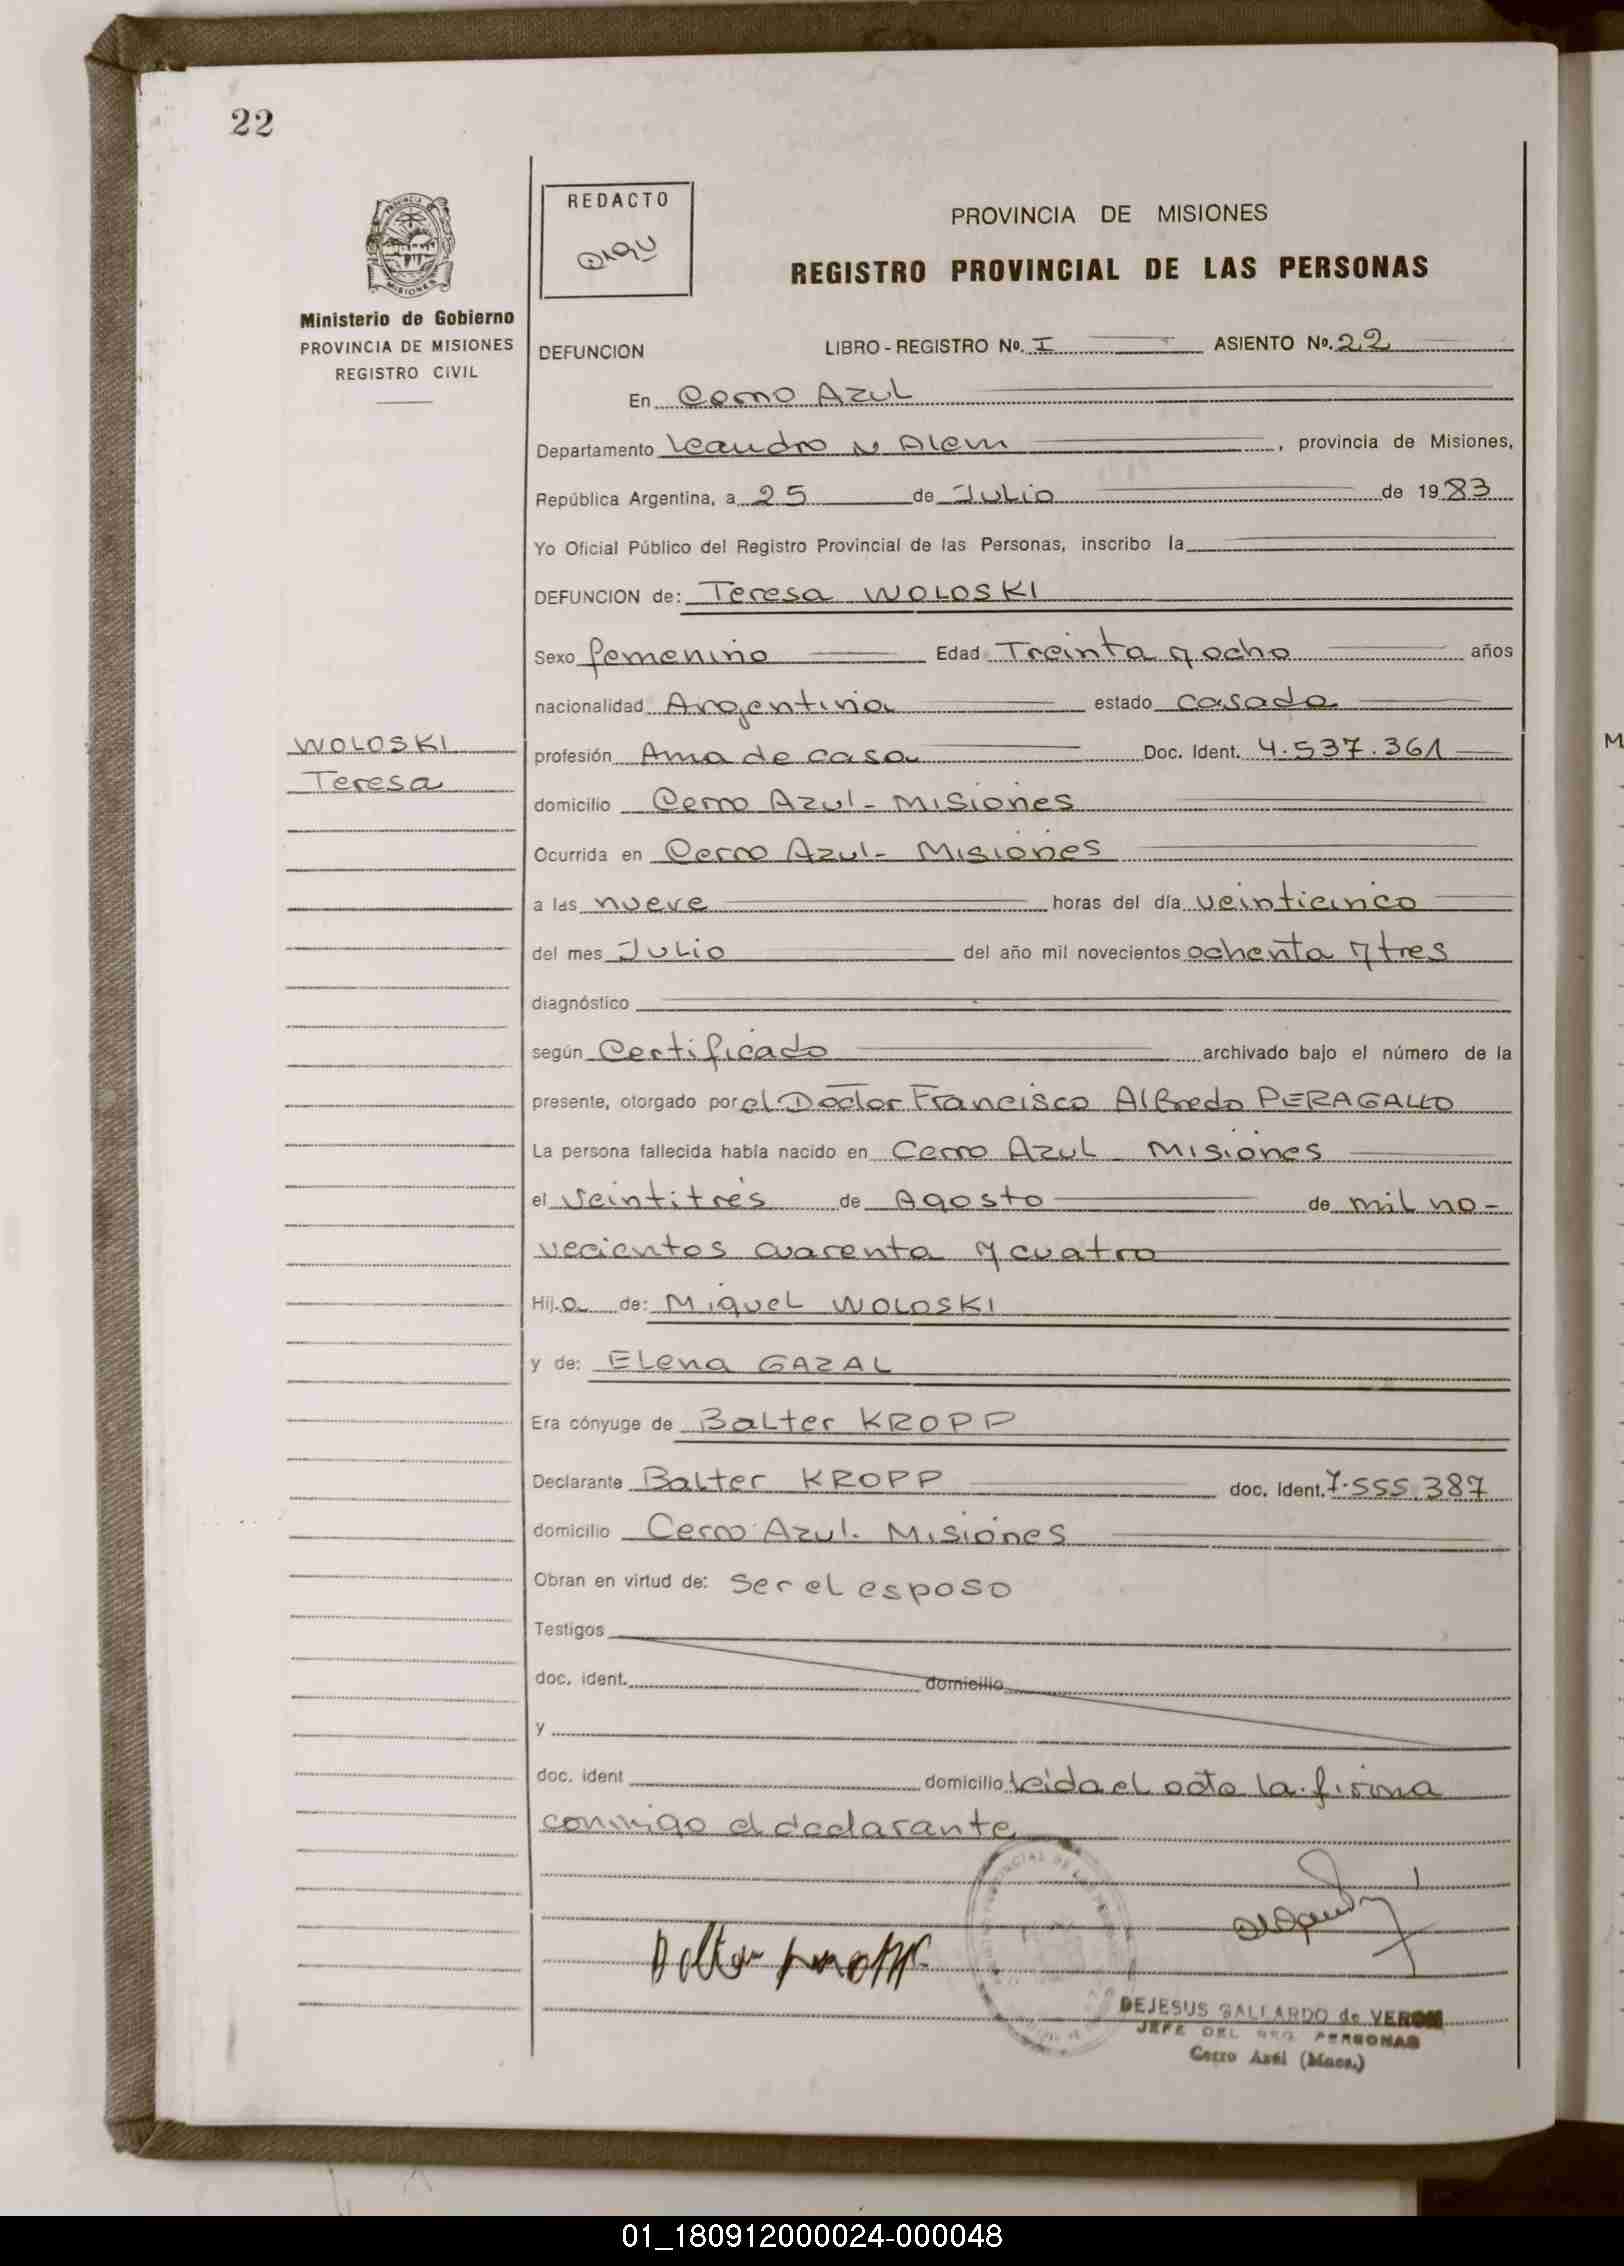 22
PROVINCIA DE MISIONES
Ministerio de Gobierno
PROVINCIA DE MISIONES
REGISTRO CIVIL
REDACTO
PROVINCIA DE MISIONES
REGISTRO PROVINCIAL DE LAS PERSONAS
DEFUNCION LIBRO-REGISTRO Nº. I ASIENTO Nº. 22
En Cerro Azul
Departamento Leandro N Alem, provincia de Misiones,
República Argentina, a 25 de Julio de 1983
Yo Oficial Público del Registro Provincial de las Personas, inscribo la
DEFUNCION de: Teresa WOLOSKI
Sexo femenino Edad Treinta y ocho años
nacionalidad Argentina estado casada
WOLOSKI
Teresa
profesión Ama de casa Doc. Ident. 4.537.361
domicilio Cerro Azul - Misiones
Ocurrida en Cerro Azul - Misiones
a las nueve horas del día veinticinco
del mes Julio del año mil novecientos ochenta y tres
diagnóstico
según Certificado archivado bajo el número de la
presente, otorgado por el Doctor Francisco Alfredo PERAGALLO
La persona fallecida había nacido en Cerro Azul - Misiones
el veintitrés de Agosto de mil no-
vecientos cuarenta y cuatro
Hij.a de: Miguel WOLOSKI
y de: Elena GAZAL
Era cónyuge de Balter KROPP
Declarante Balter KROPP doc. Ident. 7.555.387
domicilio Cerro Azul. Misiones
Obran en virtud de: Ser el esposo
Testigos
doc. ident. domicilio
y
doc. ident domicilio Leida el acta la firma
conmigo el declarante
DEJESUS GALLARDO de VERON
JEFE DEL REG. PERSONAS
Cerro Azul (Mnes.)
01_180912000024-000048